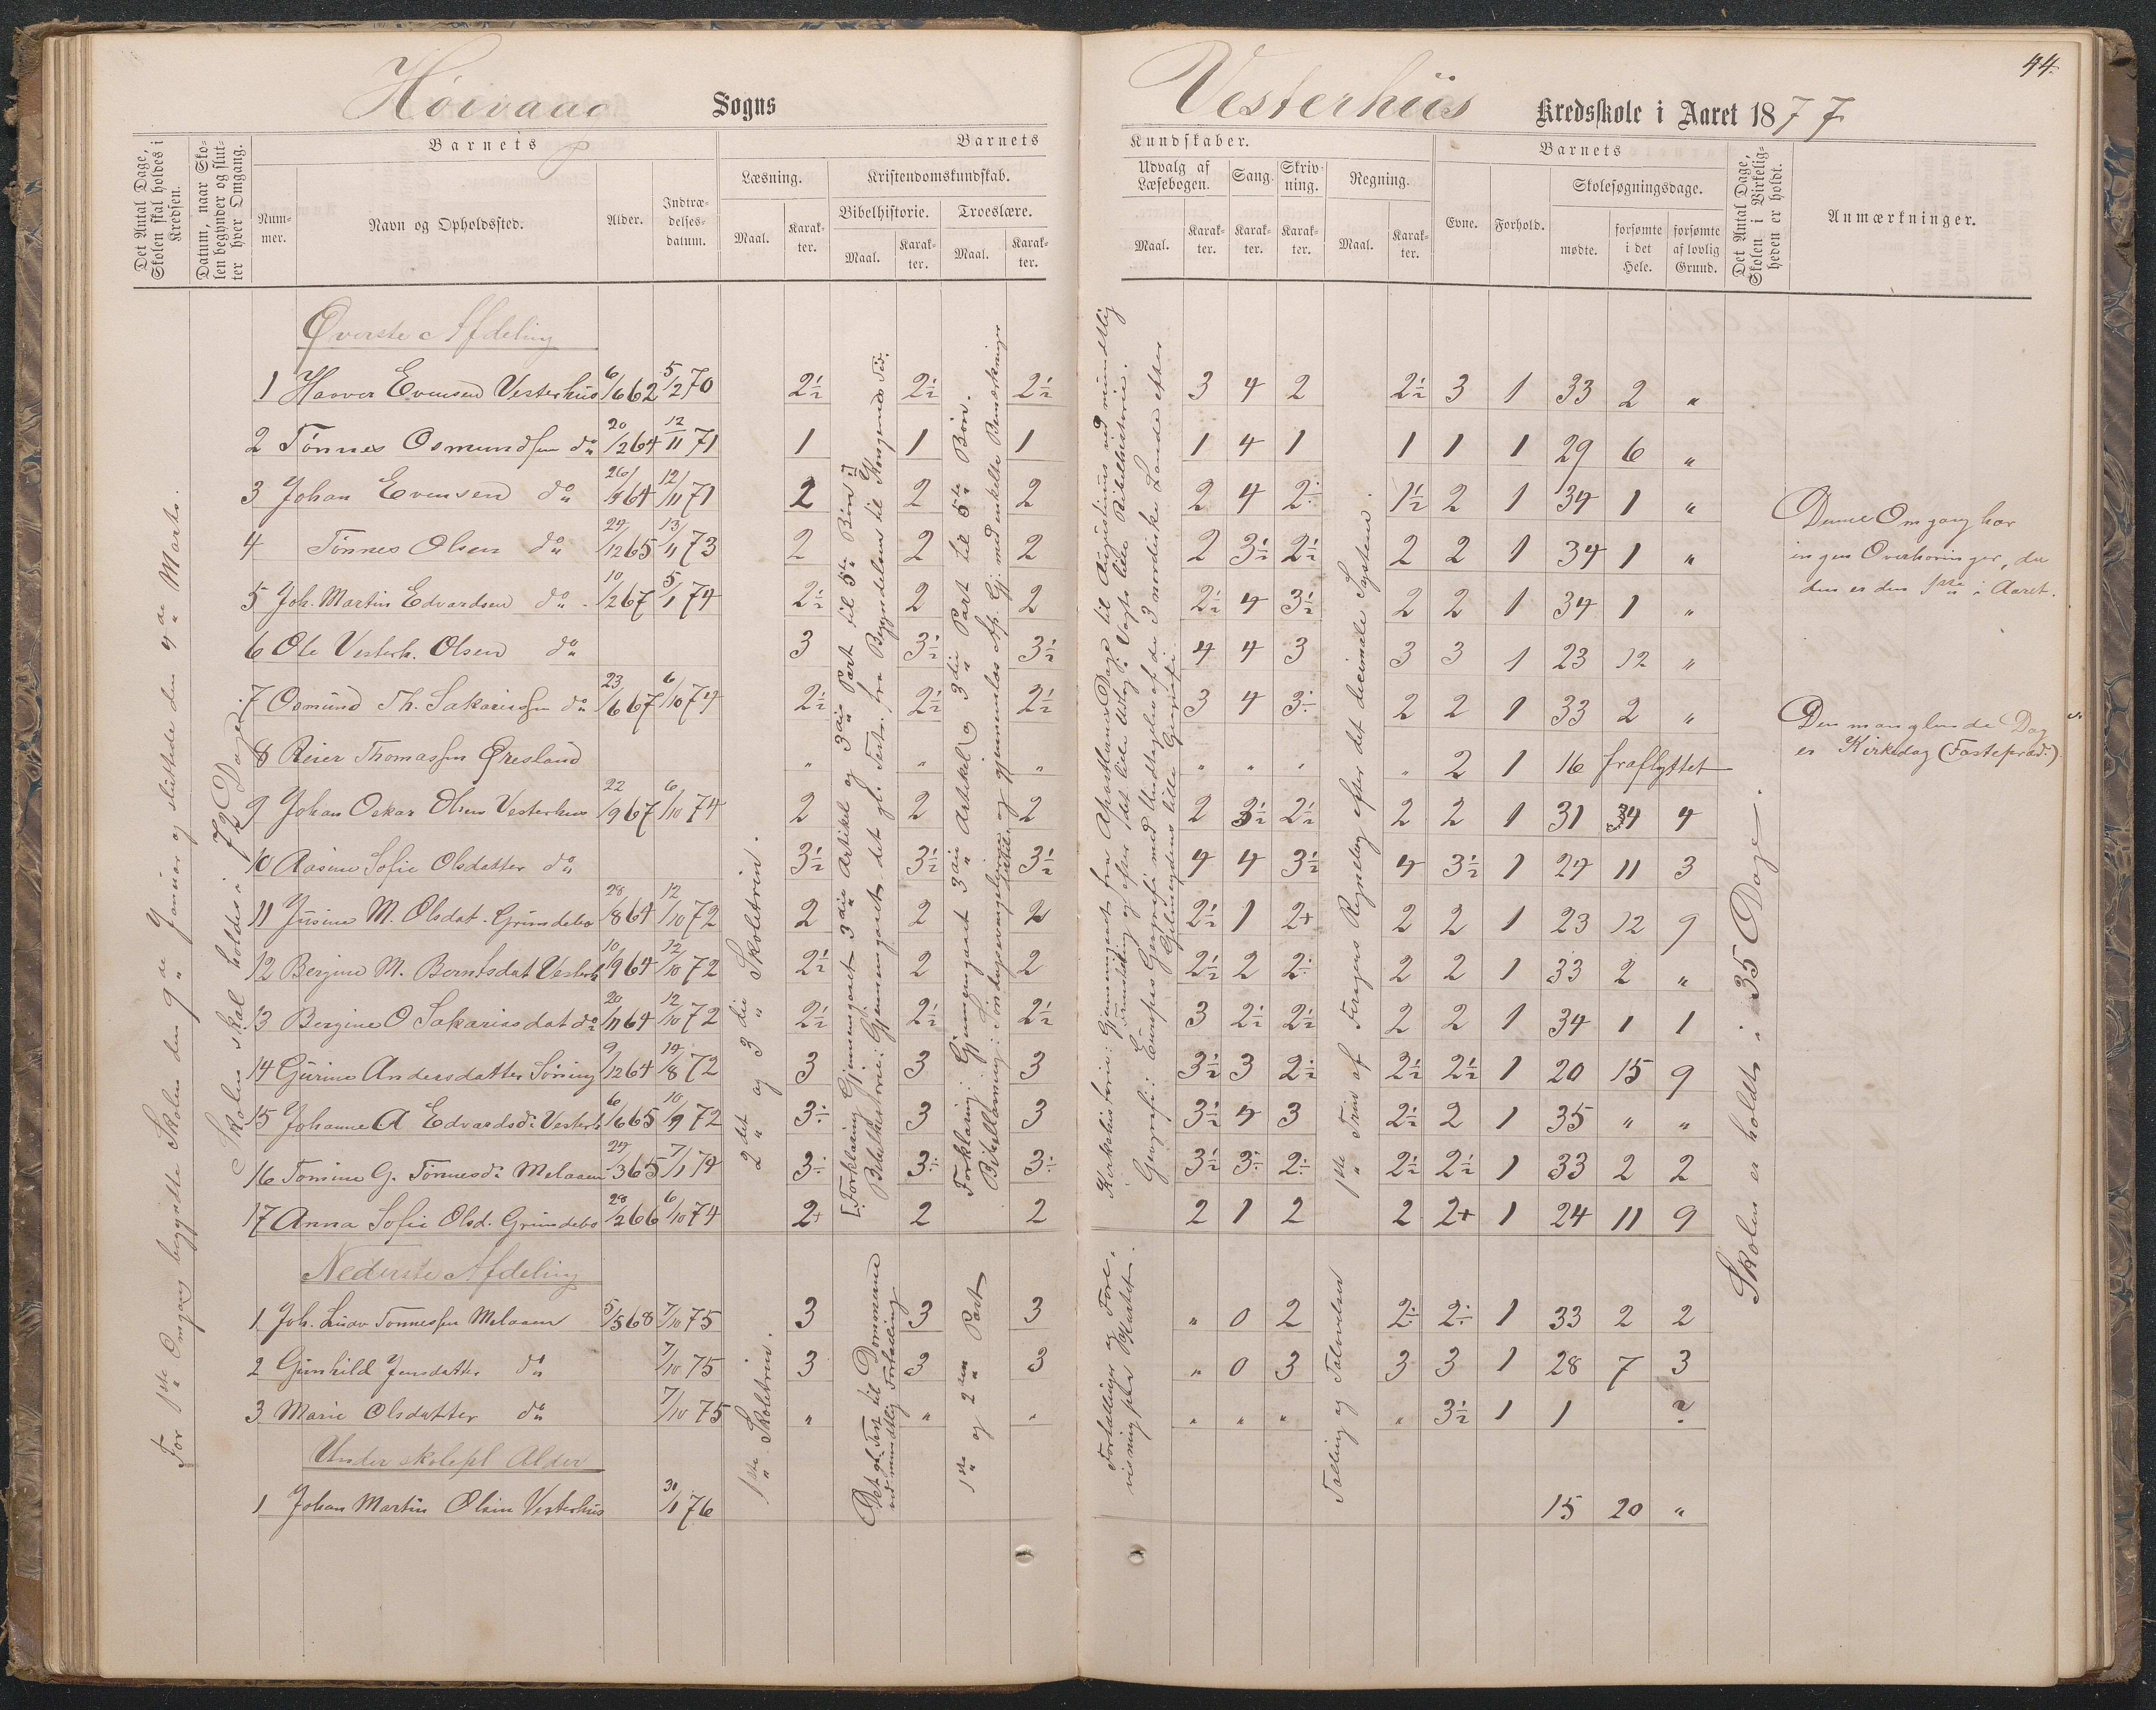 44.
Høivaag Sogns
Vesterhüs Kredsskole i Aaret 1877
Det Antal Dage, Skolen skal holdes i Kredsen.
Datum, naar Skolen begynder og slutter hver Omgang.
Barnets
Nummer.
Navn og Opholdssted.
Alder.
Indtrædelsesdatum.
Barnets
Læsning.
Maal.
Karakter.
Kristendomskundskab.
Bibelhistorie.
Maal.
Karakter.
Troeslære.
Maal.
Karakter.
Kundskaber.
Udvalg af Læsebogen.
Maal.
Karakter.
Sang.
Karakter.
Skrivning.
Karakter.
Regning.
Maal.
Karakter.
Barnets
Evne.
Forhold.
Skolesøgningsdage.
mødte.
forsømte i det Hele.
forsømte af lovlig Grund.
Det Antal Dage, Skolen i Virkeligheden er holdt.
Anmærkninger.
For 1ste Omgang begyndte Skolen den 9de Januar og sluttede den Marts.
Skolen skal holdes i 72 Dage.
Øverste Afdeling
1 Haaver Evensen Vesterhüs 6/6 62 5/2 70 2½ 2½ 2½ 3 4 2 2½ 3 1 33 2 "
2 Tønnes Osmundsen do 20/2 64 12/11 71 1 1 1 1 4 1 1 1 1 29 6 "
3 Johan Evensen do 64 12/11 71 2 2 2 2 4 2÷ 1½ 2 1 34 1 "
4 Tønnes Olsen do 24/12 65 13/11 73 2 2 2 2 3½ 2½ 2 2 1 34 1 "
5 Joh. Martin Edvardsen do 10/2 67 5/1 74 2½ 2 2 2½ 4 3½ 2 2 1 34 1 "
6 Ole Vesterh. Olsen do 3 3½ 3½ 4 4 3 3 3 1 23 12 "
7 Osmund Th. Sakariassen do 23/6 67 6/10 74 2½ 2½ 2½ 3 4 3÷ 2 2 1 33 2 "
8 Reier Thomassen Øresland " " " " " " " 2 1 16 fraflyttet
9 Johan Oskar Olsen Vesterhus 22/9 67 6/10 74 2 2 2 2 3½ 2½ 2 2 1 31 4 4
10 Aasine Sofie Olsdatter do 3½ 3½ 3½ 4 4 3½ 4 3½ 1 24 11 3
11 Jüsine M. Olsdat. Grimdebo 28/8 64 12/10 72 2 2 2 2½ 1 2+ 2 2 1 23 12 9
12 Bergine M. Berntsdat Vesterh 10/9 64 12/10 72 2½ 2 2 2½ 2 2÷ 2 2 1 33 2 "
13 Bergine O Sakariasdat do 20/11 64 12/10 72 2½ 2½ 2½ 3 2½ 2½ 2 2 1 34 1 1
14 Gürine Andersdatter Søning 9/12 64 14/8 72 3 3 3 3½ 3 2½ 2½ 2½ 1 20 15 9
15 Johanne A Edvardsd. Vesterh 6/6 65 10/9 72 3÷ 3 3 3½ 4 3 2½ 2 1 35 " "
16 Tomine G. Tønnesd. Melaaen 24/3 65 7/1 74 3÷ 3÷ 3÷ 3½ 3÷ 2÷ 2½ 2½ 1 33 2 2
17 Anna Sofie Olsd. Grimdebo 28/2 66 6/10 74 2+ 2 2 2 1 2 2 2+ 1 24 11 9
Nederste Afdeling
1 Joh. Ludv Tønnessen Melaaen 5/5 68 7/10 75 3 3 3 " 0 2 2÷ 2÷ 1 33 2 2
2 Gunhild Jensdatter do 7/10 75 3 3 3 " 0 3 3 3 1 28 7 3
3 Marie Olsdatter do 7/10 75 " " " " " " " 3½ 1 1 ?
Under skolepl Alder
1 Johan Martin Olsen Vesterhüs 31/1 76 15 20 "
2det og 3die Skoletrin.
1ste Skoletrin.
[Forklaring Gjennemgaaet 3die Artikel og 3die Part til 5te Bøn]
Bibelhistorie: Gjennemgaaet det gl. Test. fra Begyndelsen til Kongernes Tid.
Det gl. Test til Dommerne ved mundtlig Fortælling
Forklaring: Gjennemgaaet 3die Artikel og 3die Part til 5te Bøn.
Bibellæsning: Søndagsevangelierne og gjennemlæst Ap. Gj. med enkelte Bemærkninger
1ste og 2den Part
Kirkehistorie: Gjennemgaaet fra Apostlenes Dage til Augustinus ved mundtlig Fremstilling og efter det lille Udtog i Vogts lille Bibelhistorie.
Geografi: Europas Geografi med Undtagelse af de 3 nordiske Lande efter Geelmuydens lille Geografi.
Fortællinger og Forevisning paa Kartet.
1ste Trin af Firegens Regnebog efter det decimale System.
Tælling og Taløvelser
Skolen er holdt i 35 Dage.
Denne Omgang har
ingen Overhøringer, da
den er den 1ste i Aaret.
Den manglende Dag
er Kirkedag (Fastepræd.)